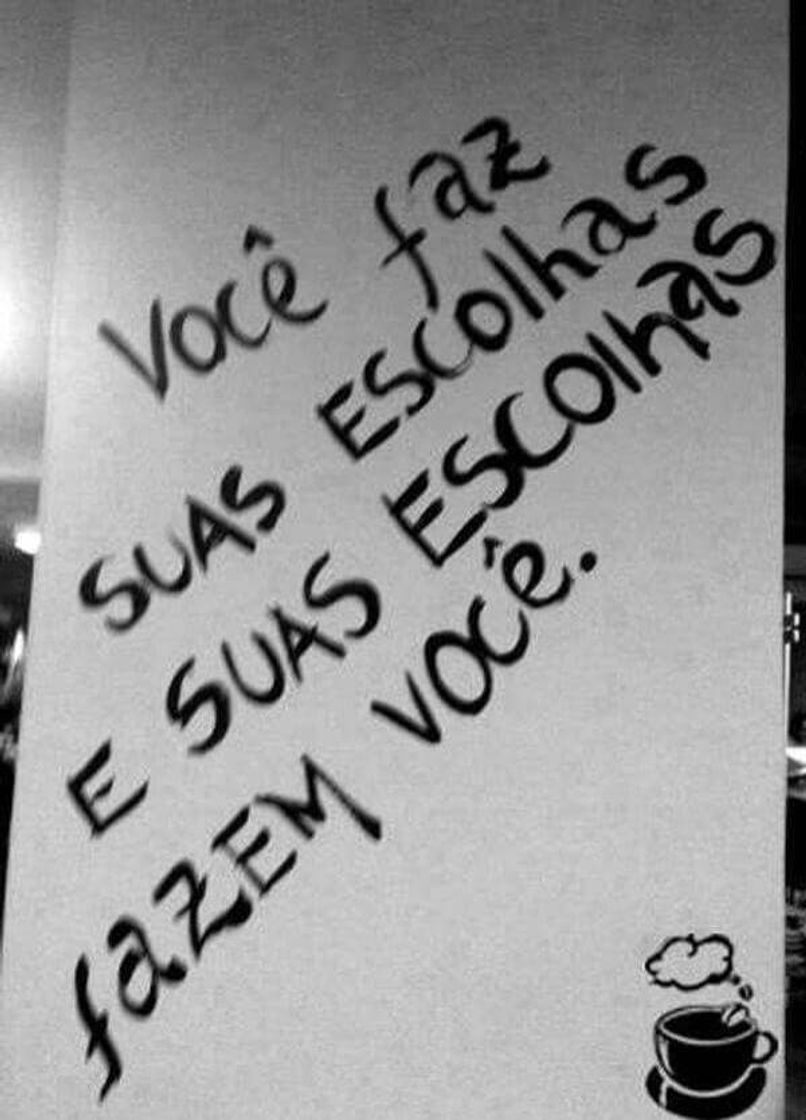 Você faz
SUAS ESColhas
E SUAS ESCOlhas
fazEM você.